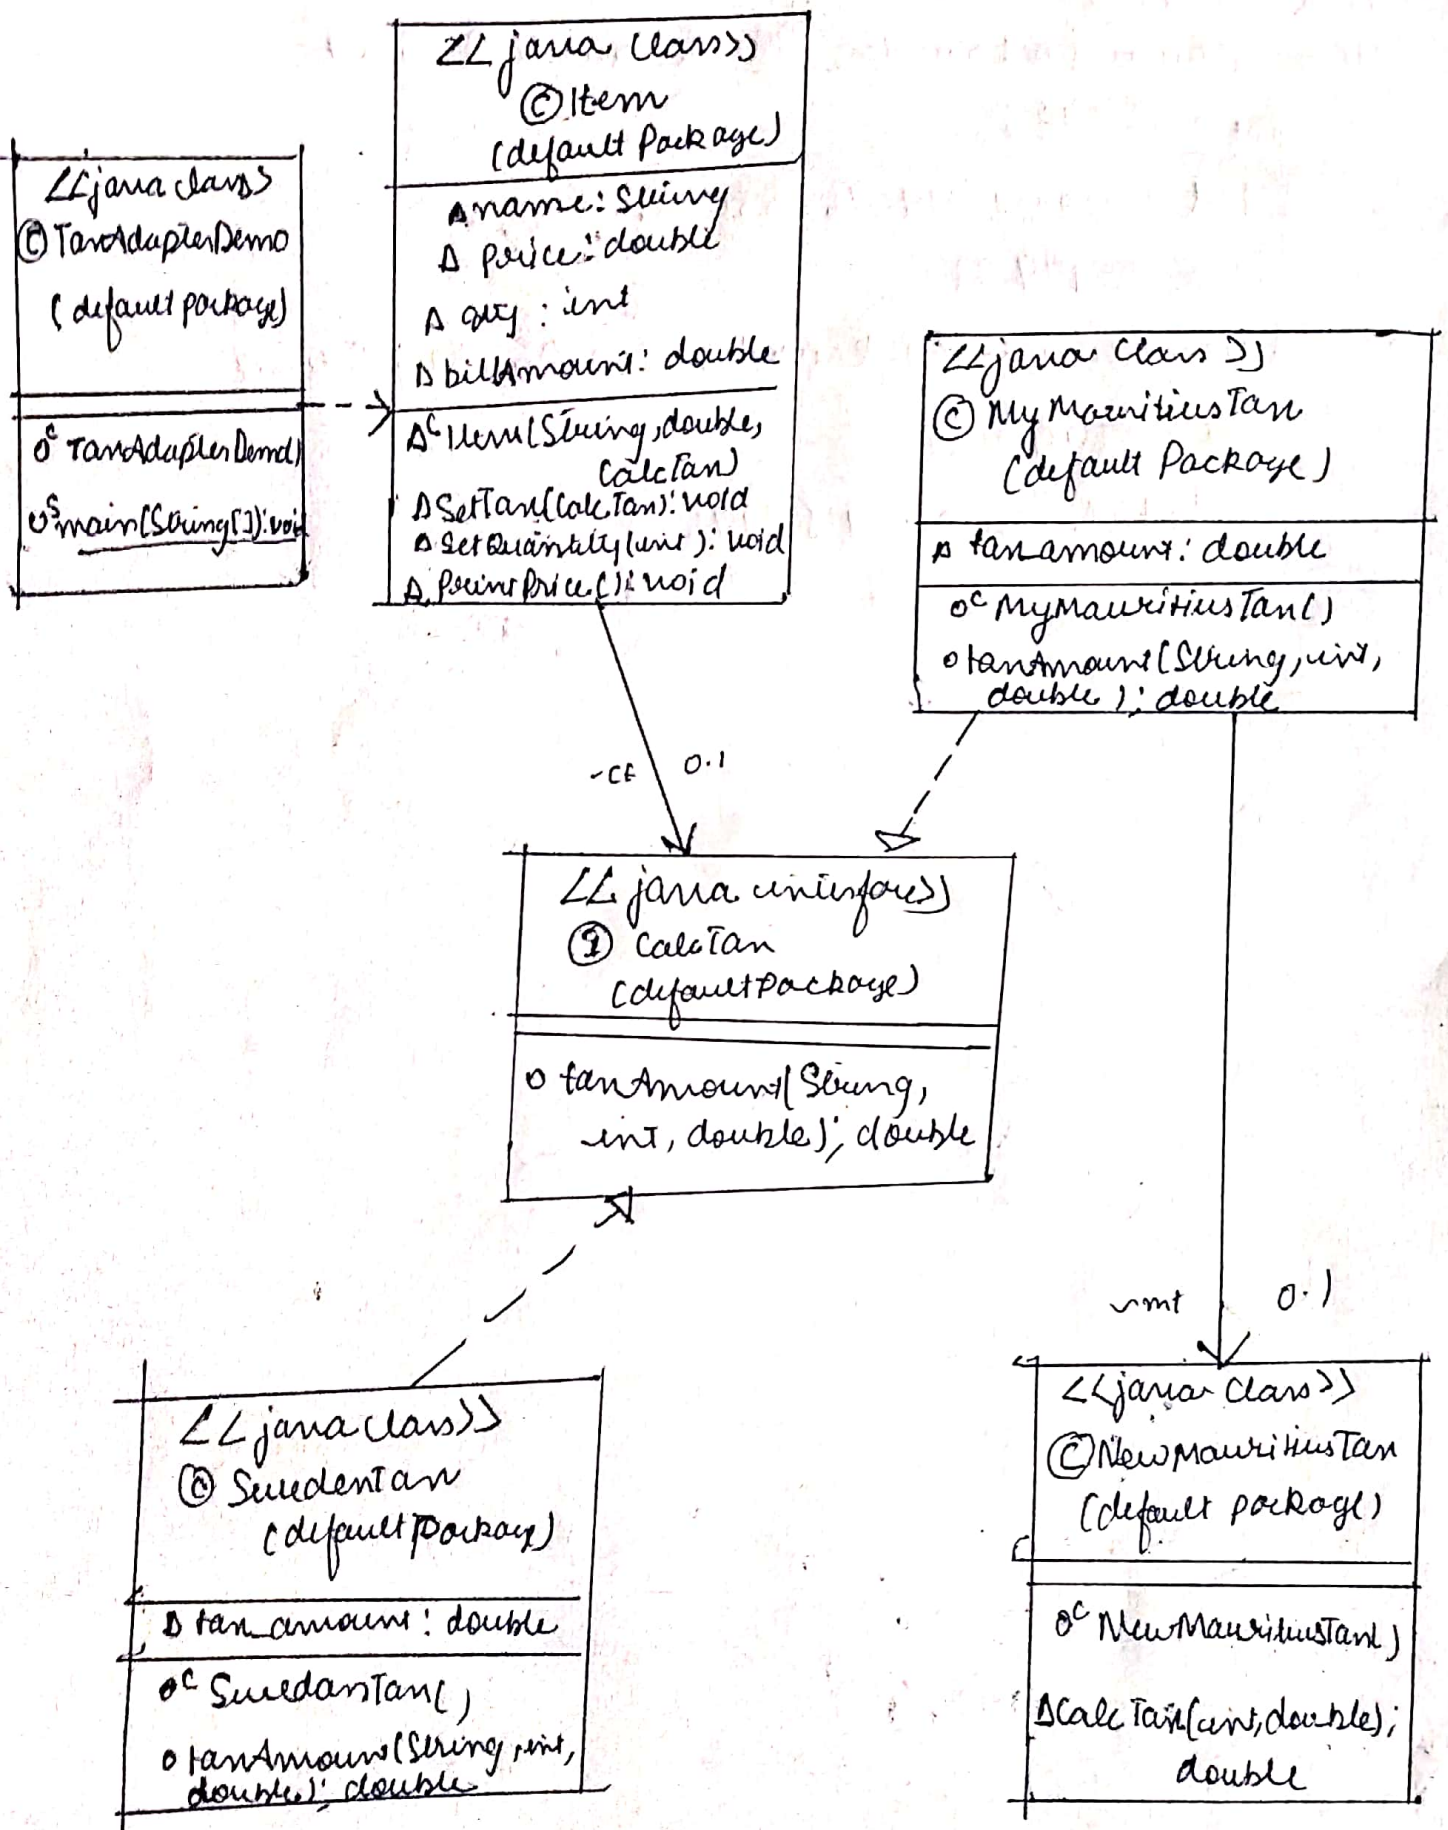 <<java class>
© TaxAdapterDemo
(default package)
oᶜ TaxAdapterDemo()
oˢ main(String[]):void
<<java class>>
© Item
(default Package)
Δ name: String
Δ price: double
Δ qty : int
Δ billAmount: double
Δᶜ Item(String, double,
CalcTax)
Δ SetTax(CalcTax): void
Δ SetQuantity(int): void
Δ PrintPrice(): void
<<java Class>>
© MyMauritiusTax
(default Package)
Δ tax_amount: double
oᶜ MyMauritiusTax()
o taxAmount(String, int,
double): double
~ct 0.1
<<java interface>>
I CalcTax
(default Package)
o taxAmount(String,
int, double); double
~mt 0.1
<<java class>>
© SwedenTax
(default Package)
Δ tax_amount: double
oᶜ SwedanTax()
o taxAmount(String, int,
double): double
<<java Class>>
© NewMauritiusTax
(default package)
oᶜ NewMauritiusTax()
Δ CalcTax(int, double);
double